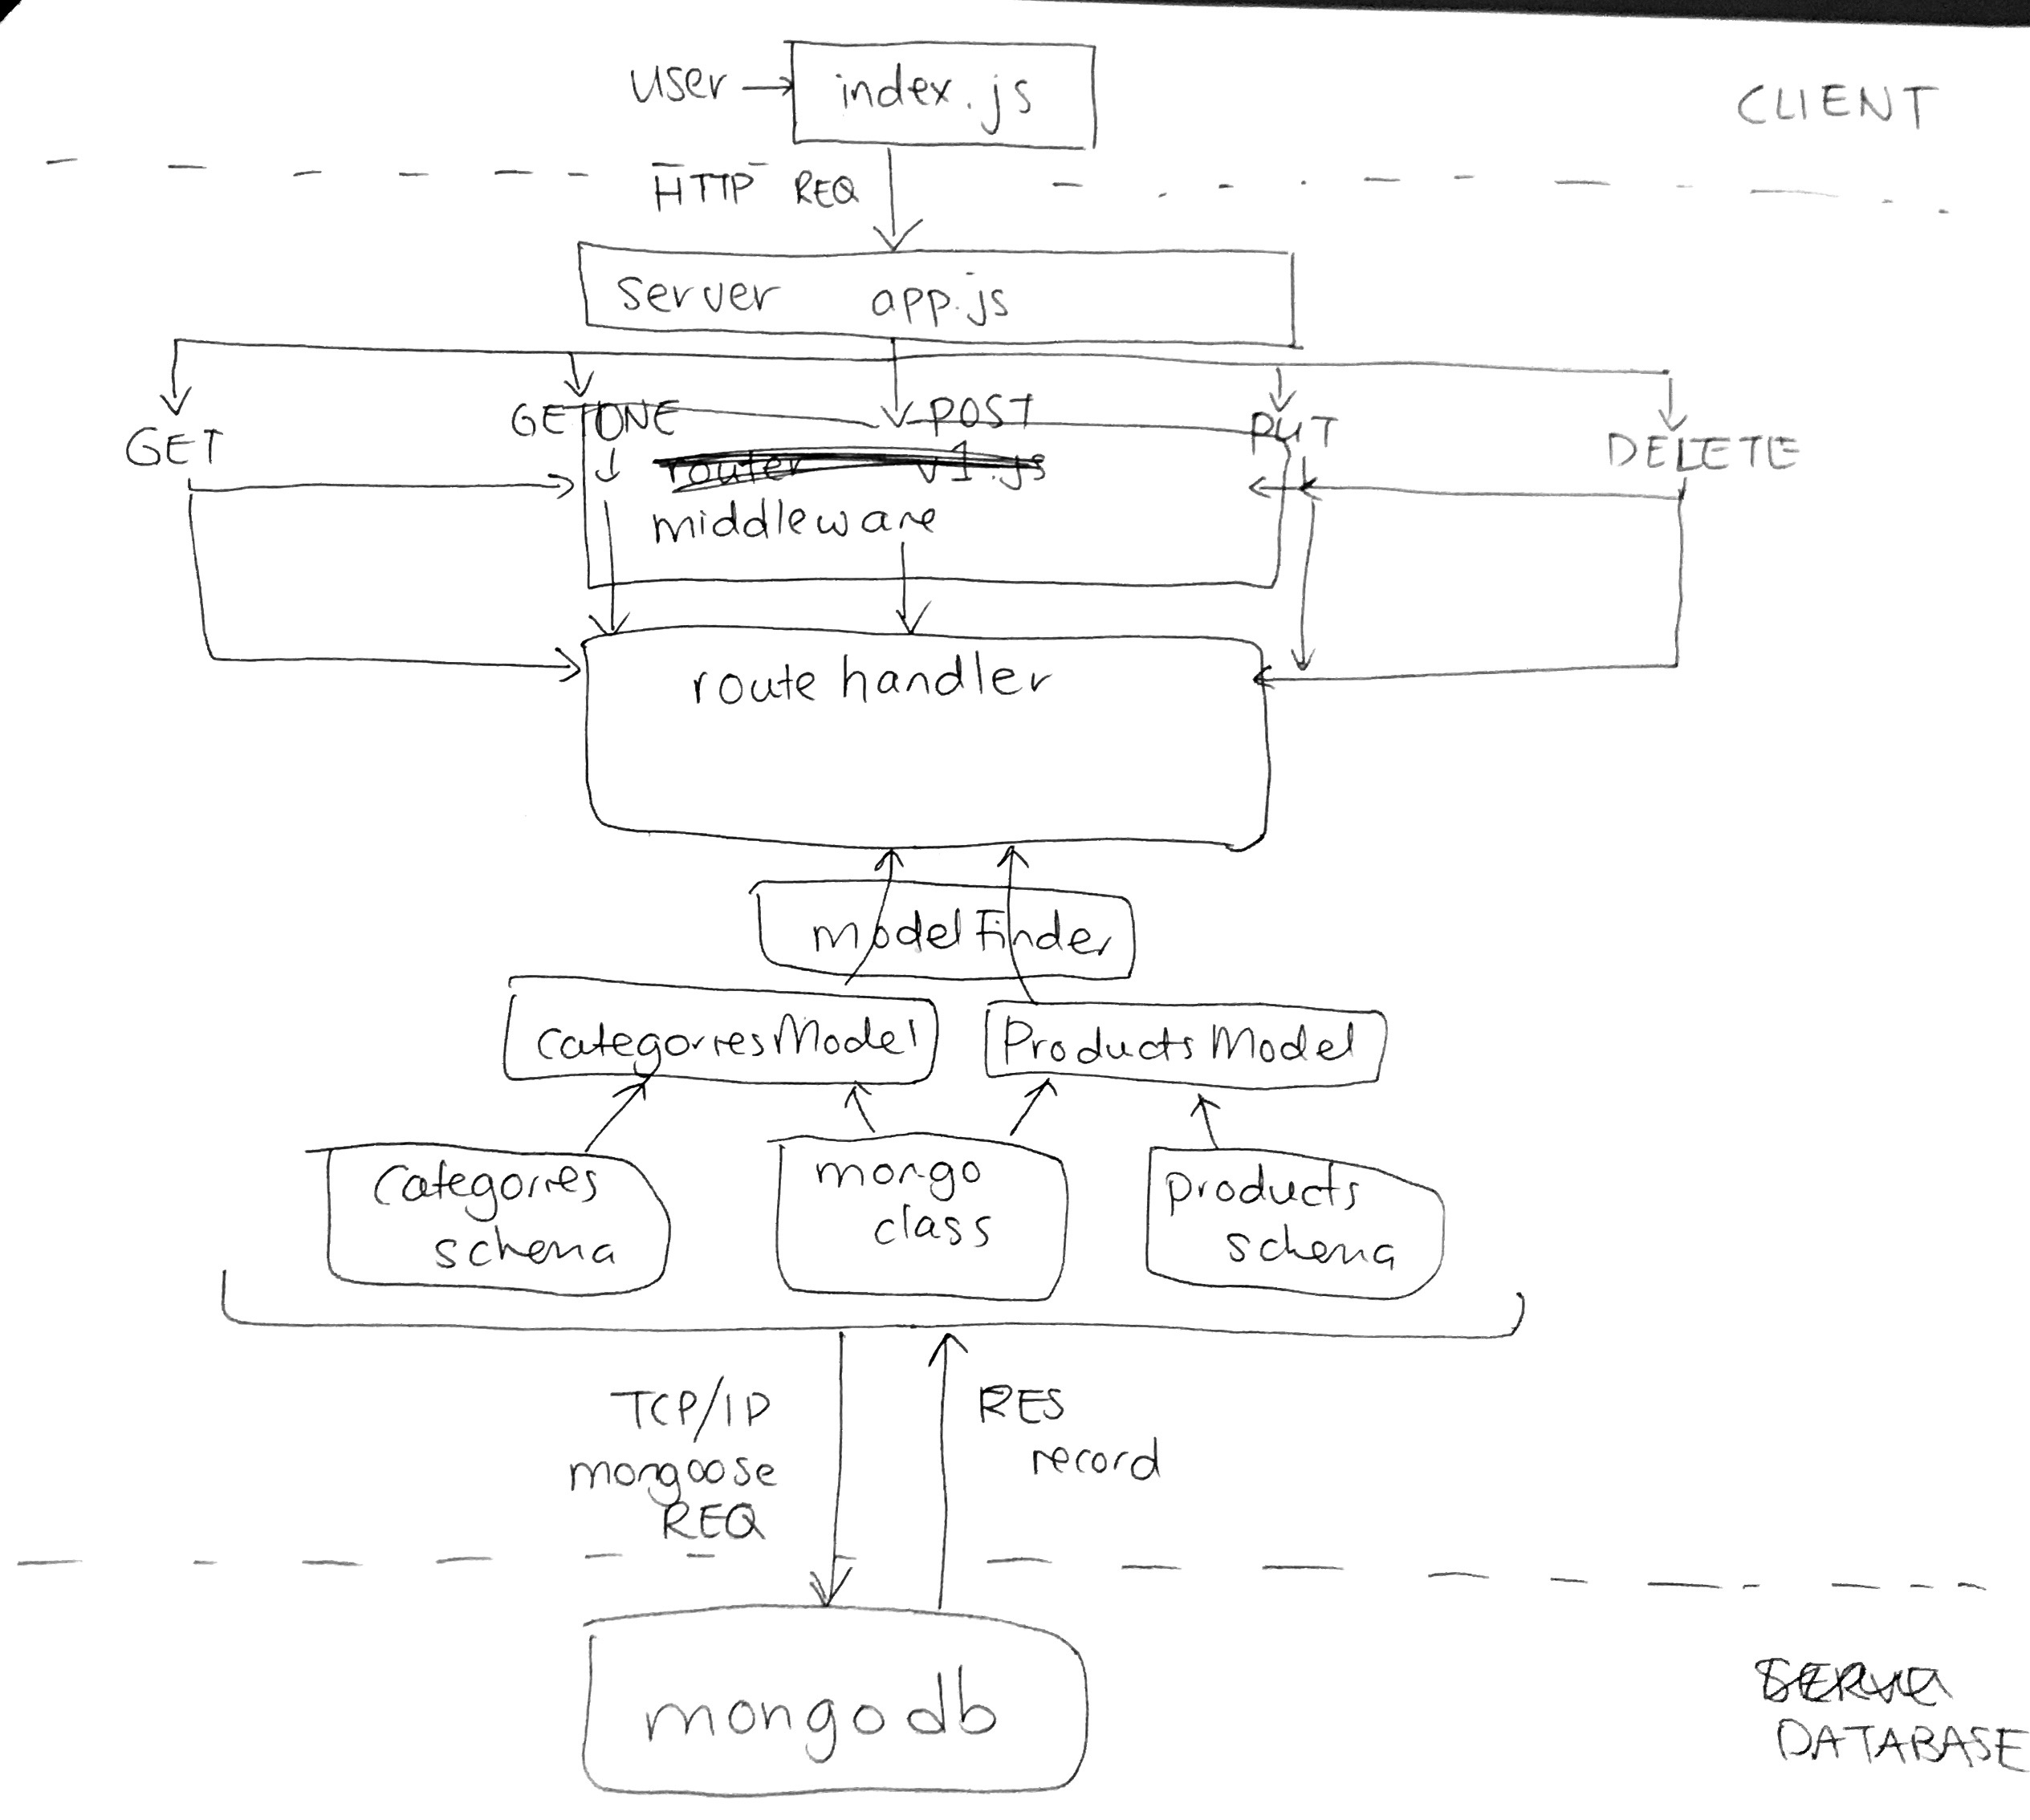 user → index.js
CLIENT
HTTP REQ
server app.js
GET
GETONE
POST
PUT
DELETE
router v1.js
middleware
route handler
modelFinder
categoriesModel
ProductsModel
categories
schema
mongo
class
products
schema
TCP/IP
mongoose
REQ
RES
record
mongodb
DATABASE